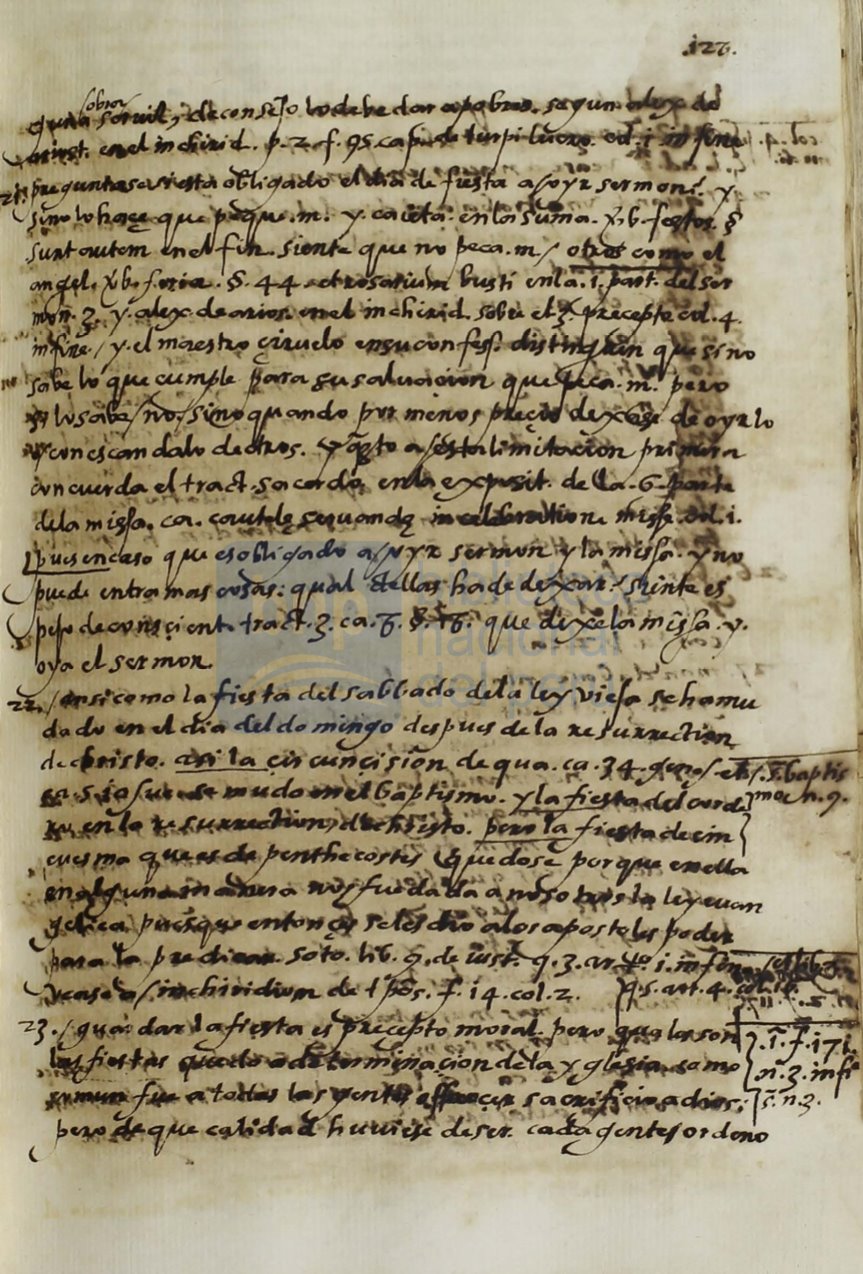 .127.
sobra
servil, y de consejo lo debe dar a pobres. segun alex. de
ariost. en el inchirid. p. 2. f. 95. cap. de turpi lucro. col. i. in fine
21. preguntase si esta obligado el dia de fiesta a oyr sermon. y
si no lo haçe que peque .m. y. caieta. en la suma. v.b. festor. §
sunt autem en el fin. siente que no peca .m / otros como el
angel. v.b. feria. §. 44 et rosarium busti en la .i. part. del ser
mon. 3. y. alex. de arios. en el inchirid. sobre el 3. precepto col. 4.
in fine / y. el maestro çiruelo en su confess. distinguen que si no
sabe lo que cumple para su saluacion que peca .m. pero
si lo sabe / no / sino quando por menos preçio dexase de oyrlo
y con escandalo de otros. y a esta limitacion primera
concuerda el tract. sacerdo. en la exposit. de la .6. parte
de la missa. ca. in celebratione misse. col. i.
pues en caso que es obligado a oyr sermon y la missa. y no
puede entramas cosas: qual dellas ha de dexar. siente es
pejo de conscient. tract. 3. ca. que dexe la missa. y.
oya el sermon.
22. / ansi como la fiesta del sabbado de la ley vieja se ha mu
dado en el dia del domingo despues de la resurrection
de christo. asi la çircunçision de qua. ca. 34. genes. et
5. iosue se mudo en el baptismo. y la fiesta del corde
ro en la resurrection de christo. pero la fiesta de cin
cuesma que es de penthecostes quedose porque en ella
en alguna manera nos fue dada a nosotros la ley euan
gelica pues que entonçes se les dio a los apostoles poder
para la predicar soto. lib. 9. de iust. q. 3. ar. i. in
vease inchiridion de tpos. f. 14. col. 2.
q. 5. art. 4. col.
23. / guardar la fiesta es precepto moral. pero quales son
las fiestas quedo a determinaçion de la yglesia. como
comun fue a todas las gentes offreçer sacrifiçio a dios.
pero de que calidad huuiese de ser. cada gente ordeno
baptis
mo n. 9.
.i. f. 171.
n. 3. in fi
n. 3.